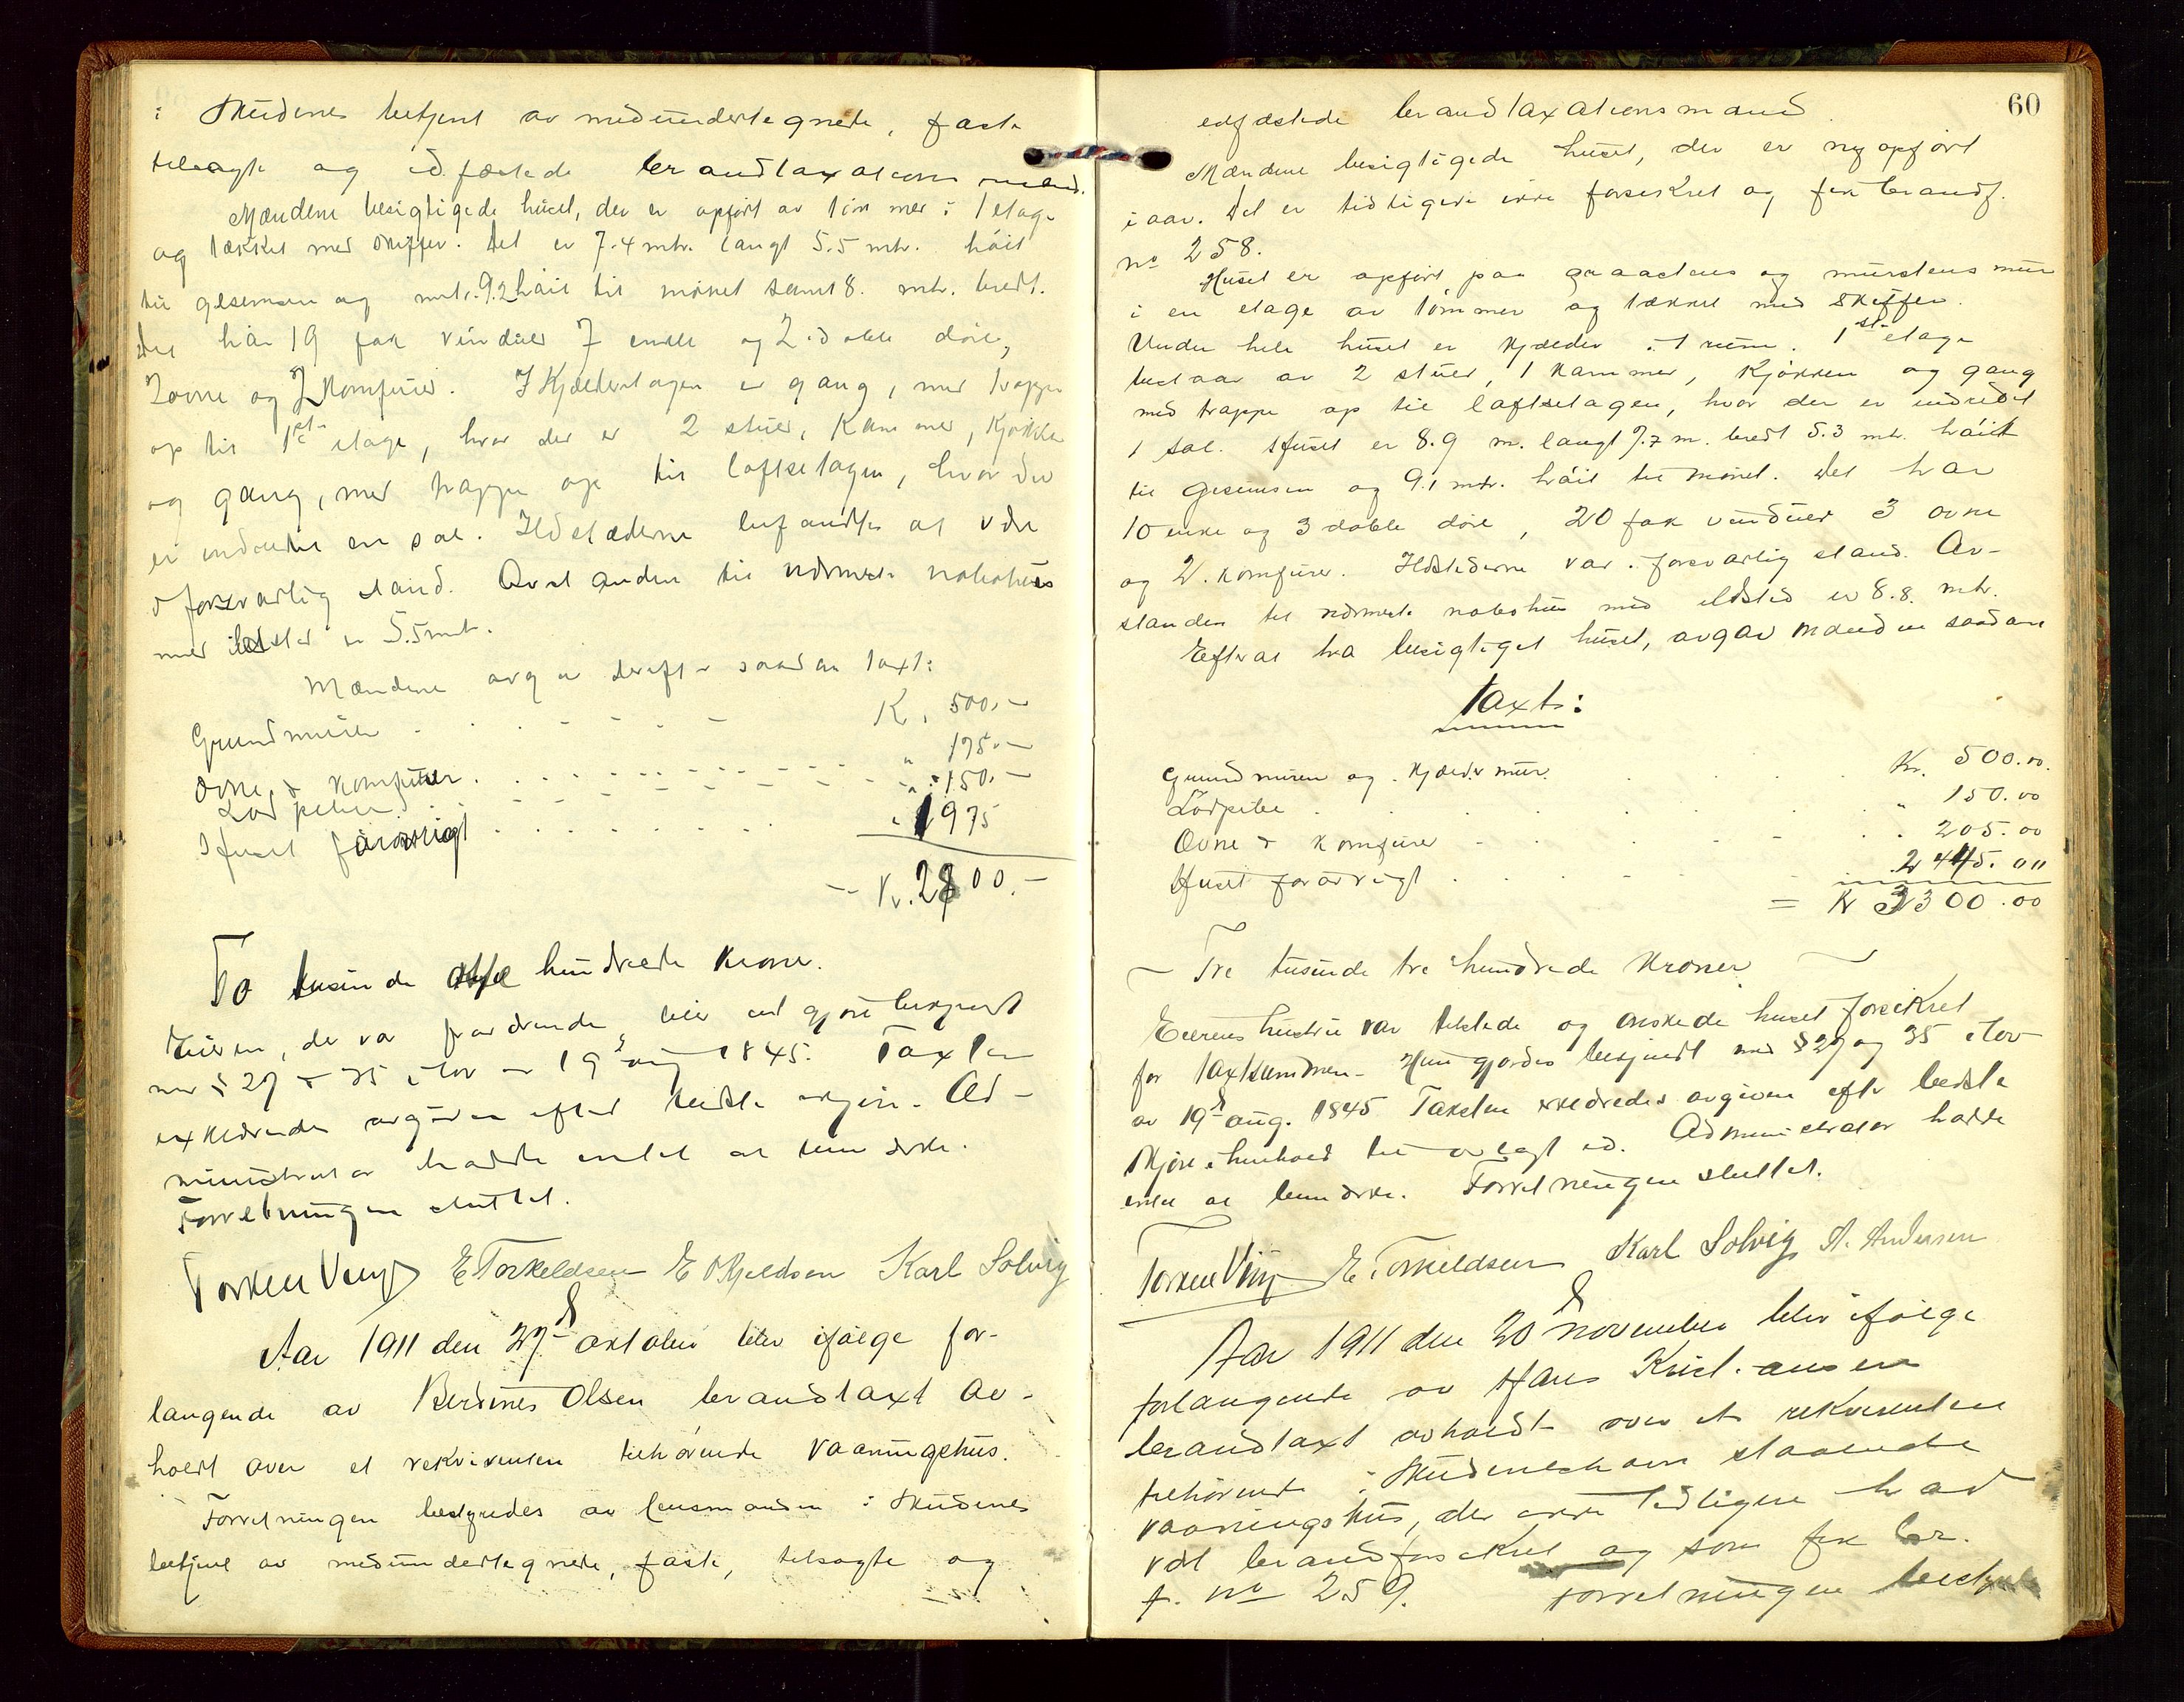 i Skudenes betjent av medundertegnede, faste
tilsagte og edfæstede brandtaxations mænd.
Mændene besigtigede huset, der er opført av tømmer i 1 etage
og tækket med skiffer. Det er 7.4 mtr. langt 5.5 mtr. høit
til gesimsen og mtr. 9.2 høit til mønet samt 8. mtr. bredt.
Det har 19 fak vinduer 7 enkle og 2 doble døre,
2 ovne og 2 Komfurer. I Kjælderetagen er gang, med trappe
op til 1ste etage, hvor der er 2 stuer, Kammer, Kjøkken
og gang, med trappe op til loftsetagen, hvor der
er indredet en sal. Ildstæderne befandtes at være
i forsvarlig stand. Avstanden til nærmeste nabohus
med ildsted er 5.5 mtr.
Mændene avgav derefter saadan taxt:
Grundmuren K. 500.-
Ovne & Komfurer " 175.-
Lødpiber " 150.-
Huset forøvrigt " 1975
Kr. 2800.-
To tusinde otte hundrede Kroner.
Eieren, der var fraværende, blir at gjøre bekjendt
med § 27 & 35 i lov av 19d aug 1845. Taxten
erklæredes avgiven efter bedste skjøn. Ad-
ministrator hadde intet at bemærke.
Forretningen sluttet.
Torkell Veng E Torkeldsen E Kjeldsen Karl Solvig
Aar 1911 den 27d oktober blev ifølge for-
langende av Berdines Olsen brandtaxt av-
holdt over et rekvirenten tilhørende vaaningshus.
Forretningen bestyredes av lensmanden i Skudenes
betjent av medundertegnede, faste, tilsagte og
60
edfæstede brandtaxationsmænd.
Mændene besigtigede huset, der er ny opført
i aar. Det er tidligere ikke forsikret og fik brandf.
no 258.
Huset er opført paa graastens og murstens mur
i en etage av tømmer og tækket med skiffer.
Under hele huset er Kjælder i 1 rum. 1ste etage
bestaar av 2 stuer, 1 Kammer, Kjøkken og gang
med trappe op til loftsetagen, hvor der er indredet
1 sal. Huset er 8.9 m. langt 7.7 m. bredt 5.3 mtr. høit
til gesimsen og 9.1 mtr. høit til mønet. Det har
10 enke og 3 doble døre, 20 fak vinduer 3 ovne
og 2. komfurer. Ildstederne var i forsvarlig stand. Av-
standen til nærmeste nabohus med ildsted er 8.8. mtr.
Efter at ha besigtiget huset, avgav mændene saadan
taxt:
Grundmuren og Kjælder mur. Kr. 500.00.
Lødpibe " 150.00
Ovne & Komfurer " 205.00
Huset forøvrigt 2445.00
= Kr 3300.00
Tre tusinde tre hundrede Kroner
Eierens hustru var tilstede og ønskede huset forsikret
for taxtsummen. Hun gjordes bekjendt med § 27 og 35 i lov
av 19d aug. 1845 Taxten erklæredes avgiven efter bedste
skjøn i henhold til avlagt ed. Administrator hadde
intet at bemærke. Forretningen sluttet.
Torkell Veng E Torkeldsen Karl Solvig A. Andersen
Aar 1911 den 20d november blev ifølge
forlangende av Hans Kristiansen
brandtaxt avholdt over et rekvirenten
tilhørende i Skudeneshavn staaende
vaaningshus, der ikke tidligere har
vært brandforsikret og som fik br.
f. no 259. Forretningen bestyredes